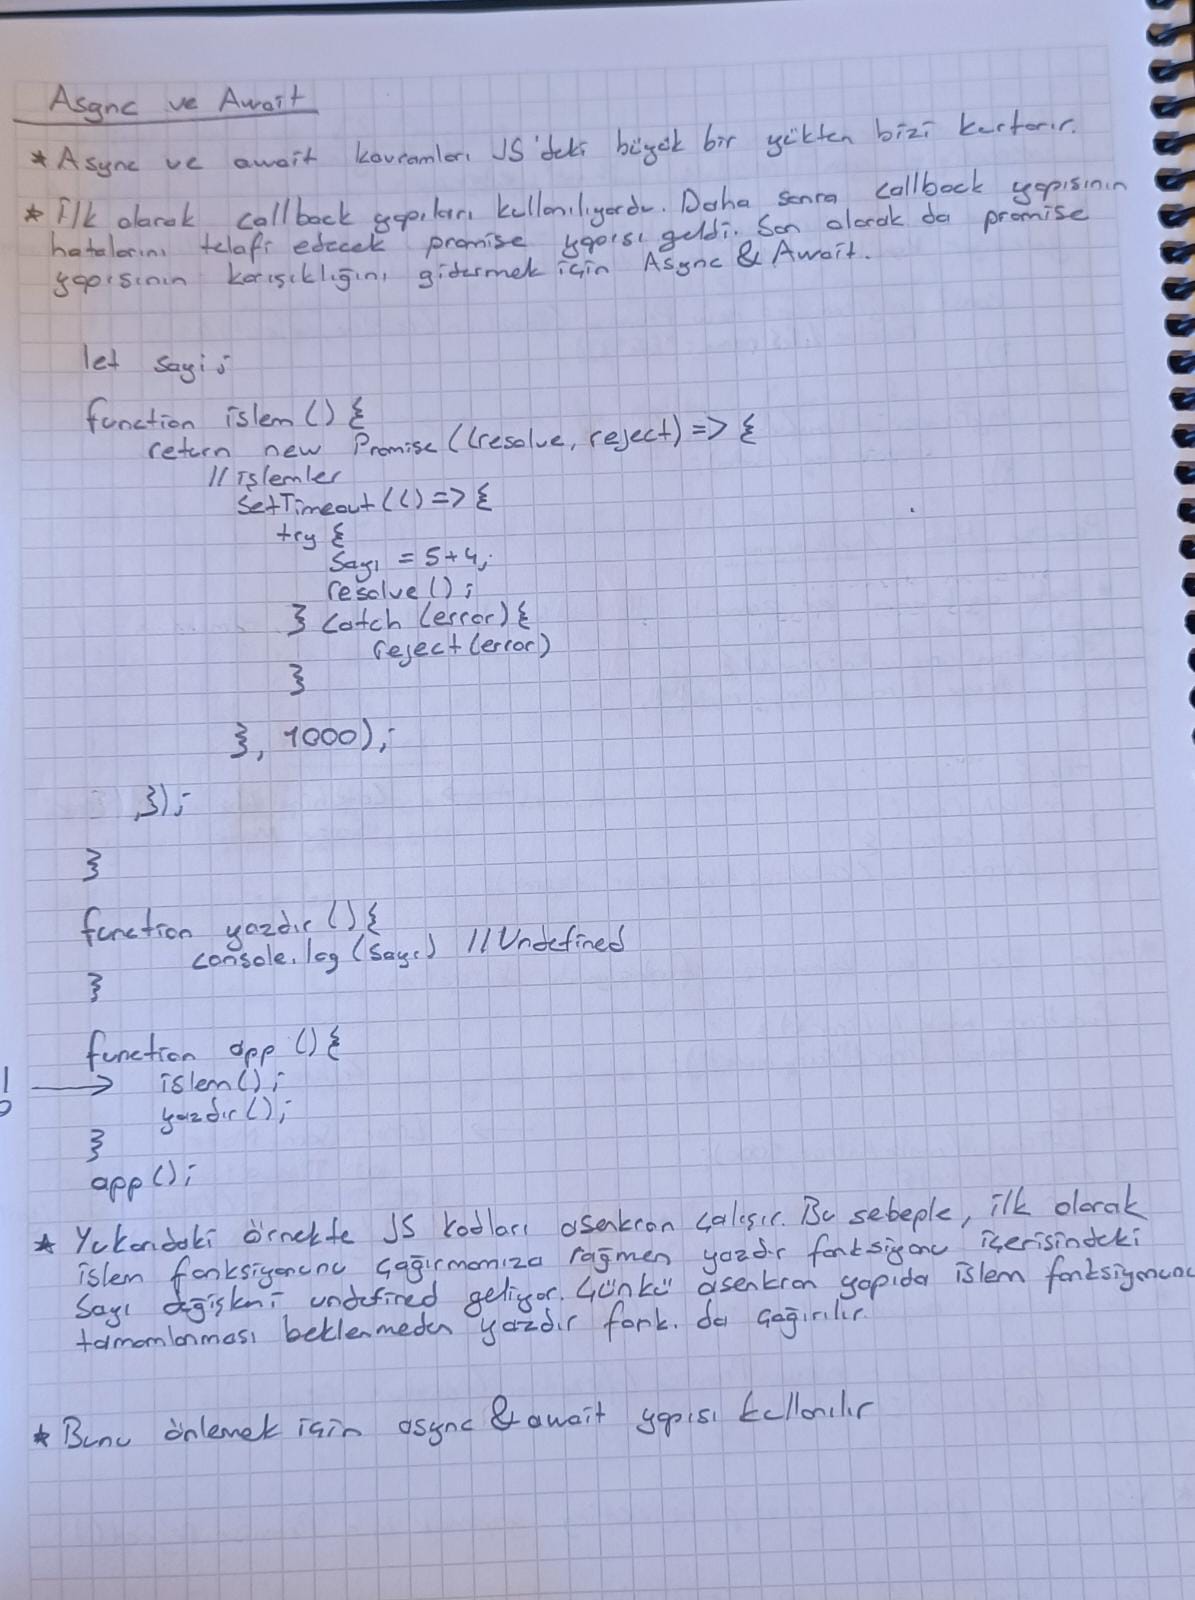 Async ve Await
* Async ve await kavramları JS'deki büyük bir yükten bizi kurtarır.
* İlk olarak callback yapıları kullanılıyordu. Daha sonra callback yapısının
hatalarını telafi edecek promise yapısı geldi. Son olarak da promise
yapısının karışıklığını gidermek için Async & Await.
let sayi;
function islem () {
return new Promise ((resolve, reject) => {
// işlemler
SetTimeout (() => {
try {
Sayı = 5+4;
resolve ();
} catch (error) {
reject (error)
}
}, 1000);
});
}
function yazdır () {
console.log (Sayı) // Undefined
}
function app () {
1 → islem();
yazdır();
}
app ();
* Yukarıdaki örnekte JS kodları asenkron çalışır. Bu sebeple, ilk olarak
islem fonksiyonunu çağırmamıza rağmen yazdır fonksiyonu içerisindeki
Sayı değişkeni undefined geliyor. Çünkü asenkron yapıda islem fonksiyonunun
tamamlanması beklenmeden yazdır fonk. da çağırılır.
* Bunu önlemek için async & await yapısı kullanılır